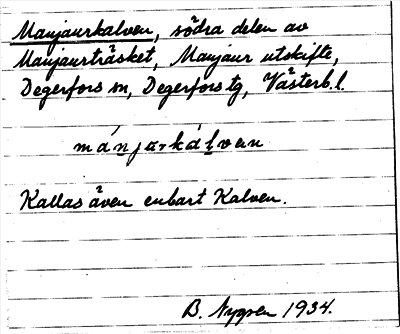 Manjaurkalven, södra delen av
Manjaurträsket, Manjaur utskifte,
Degerfors sn, Degerfors tg, Västerb. l.
mánjarkálven
Kallas även enbart Kalven.
B. Nygren 1934.